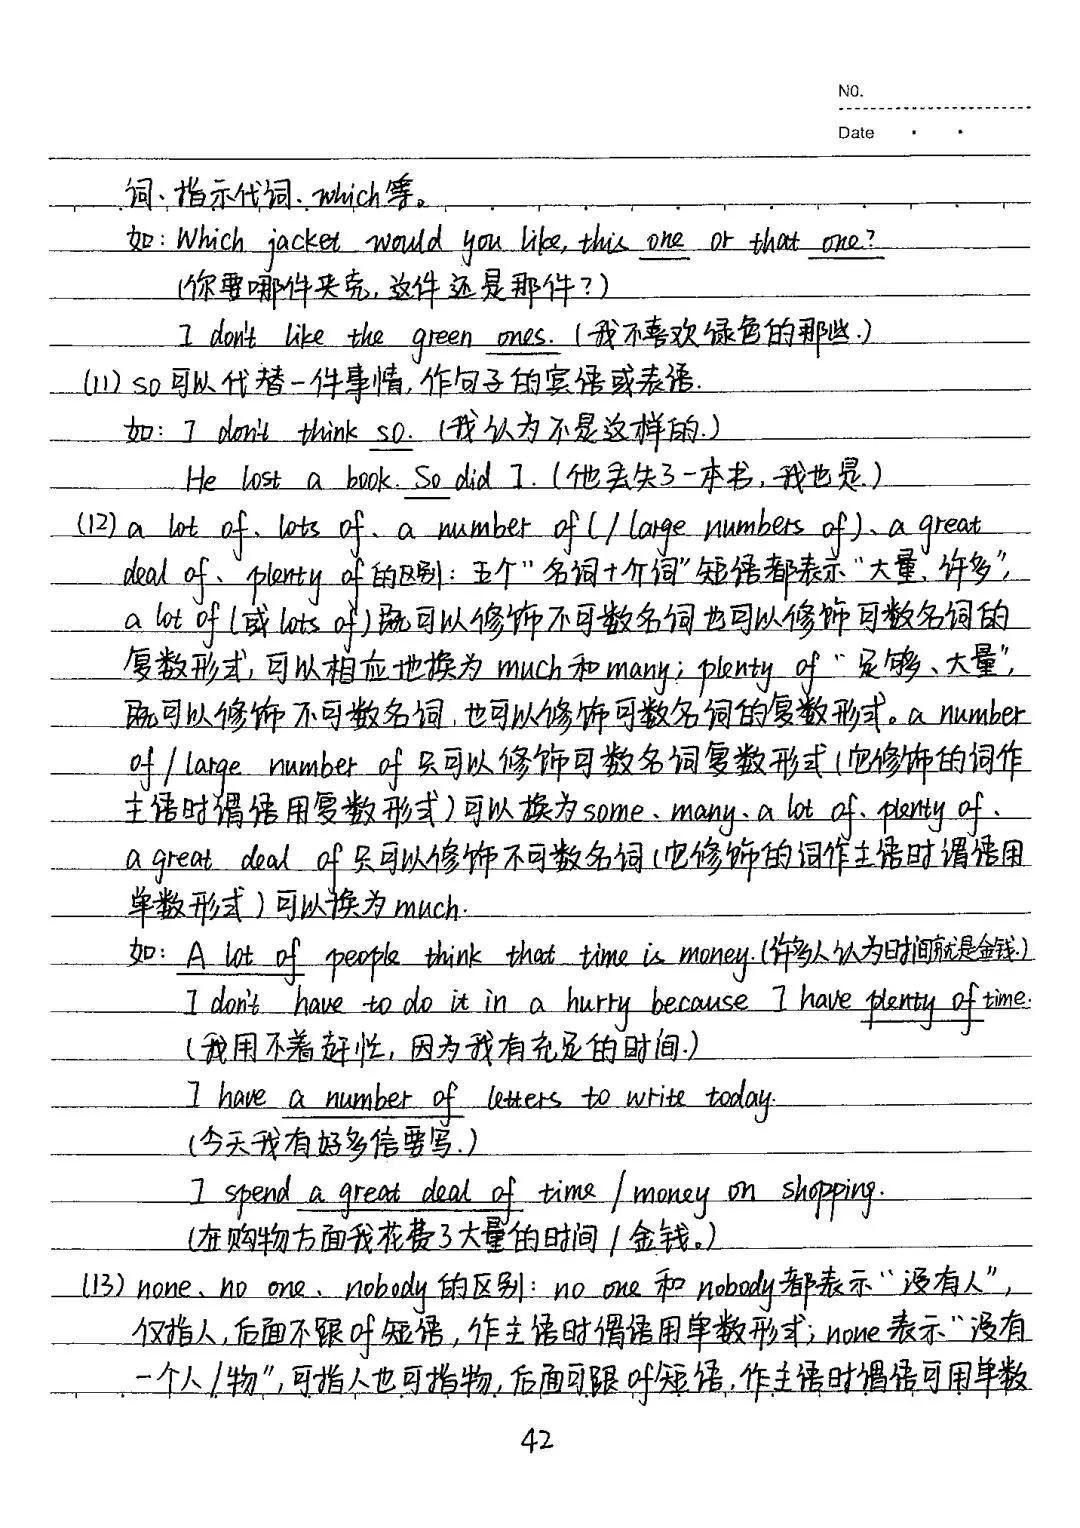 No.
Date
词、指示代词、which等。
如: Which jacket would you like, this one or that one?
(你要哪件夹克, 这件还是那件?)
I don't like the green ones. (我不喜欢绿色的那些.)
(11) so可以代替一件事情, 作句子的宾语或表语.
如: I don't think so. (我认为不是这样的.)
He lost a book. So did I. (他丢失了一本书, 我也是.)
(12) a lot of、lots of、a number of(/large numbers of)、a great
deal of、plenty of的区别: 五个"名词+介词"短语都表示"大量、许多",
a lot of(或lots of)既可以修饰不可数名词也可以修饰可数名词的
复数形式, 可以相应地换为much和many; plenty of "足够、大量",
既可以修饰不可数名词, 也可以修饰可数名词的复数形式。a number
of/large number of只可以修饰可数名词复数形式(它修饰的词作
主语时谓语用复数形式)可以换为some、many、a lot of、plenty of、
a great deal of只可以修饰不可数名词(它修饰的词作主语时谓语用
单数形式)可以换为much.
如: A lot of people think that time is money.(许多人认为时间就是金钱.)
I don't have to do it in a hurry because I have plenty of time.
(我用不着赶忙, 因为我有充足的时间.)
I have a number of letters to write today.
(今天我有好多信要写.)
I spend a great deal of time/money on shopping.
(在购物方面我花费了大量的时间/金钱。)
(13) none、no one、nobody的区别: no one和nobody都表示"没有人",
仅指人, 后面不跟of短语, 作主语时谓语用单数形式; none表示"没有
一个人/物", 可指人也可指物, 后面可跟of短语, 作主语时谓语可用单数
42